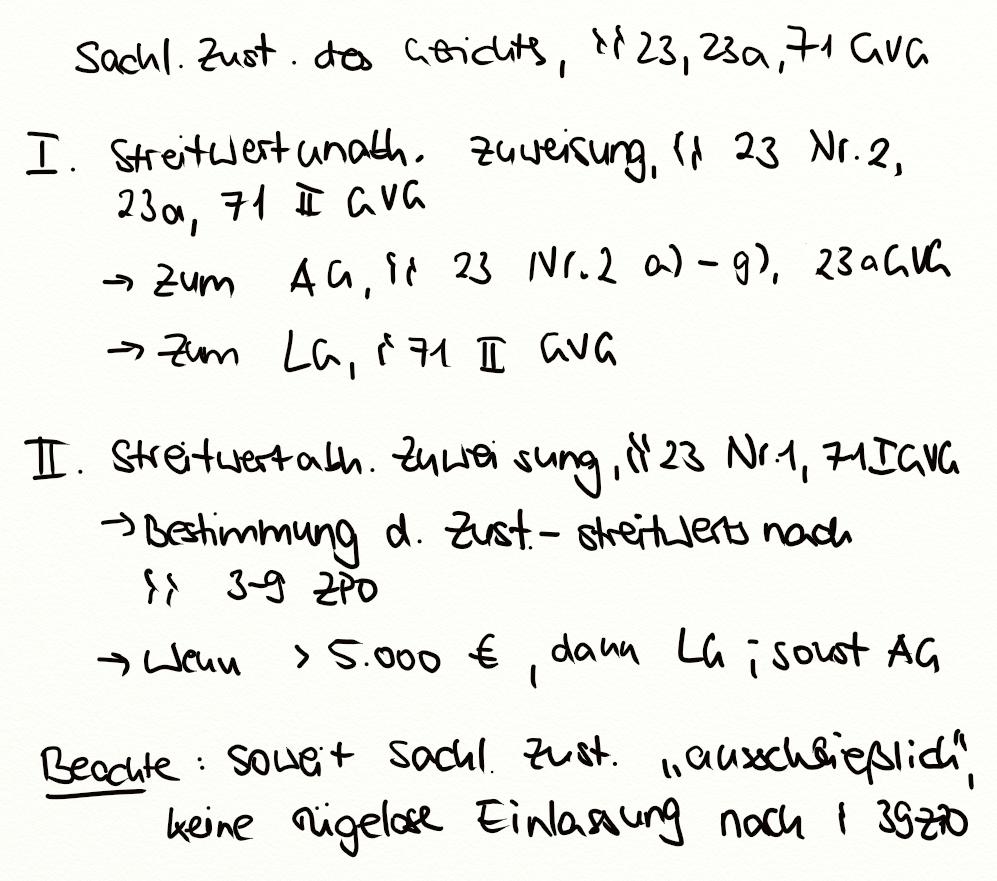 Sachl. Zust. des Gerichts, §§ 23, 23a, 71 GVG
I. Streitwertunabh. Zuweisung, §§ 23 Nr. 2,
23a, 71 II GVG
→ Zum AG, §§ 23 Nr. 2 a) - g), 23a GVG
→ Zum LG, § 71 II GVG
II. Streitwertabh. Zuweisung, §§ 23 Nr. 1, 71 I GVG
→ Bestimmung d. Zust.-streitwerts nach
§§ 3-9 ZPO
→ Wenn > 5.000 €, dann LG; sonst AG
Beachte: soweit sachl. Zust. „ausschließlich",
keine rügelose Einlassung nach § 39 ZPO